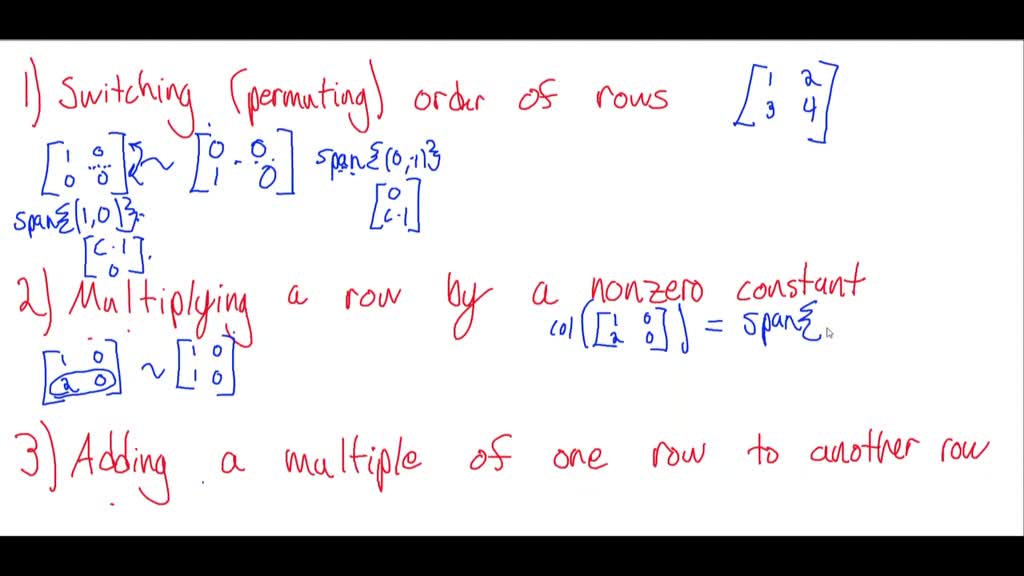 1) Switching (permuting) order of rows [1 2
3 4]
[1 0
0 0] ~ [0 0
1 0] span{(0,1)}
span{(1,0)} [0
c·1]
[c·1
0]
2) Multiplying a row by a nonzero constant
col([1 0
2 0]) = span{
[1 0
2 0] ~ [1 0
1 0]
3) Adding a multiple of one row to another row